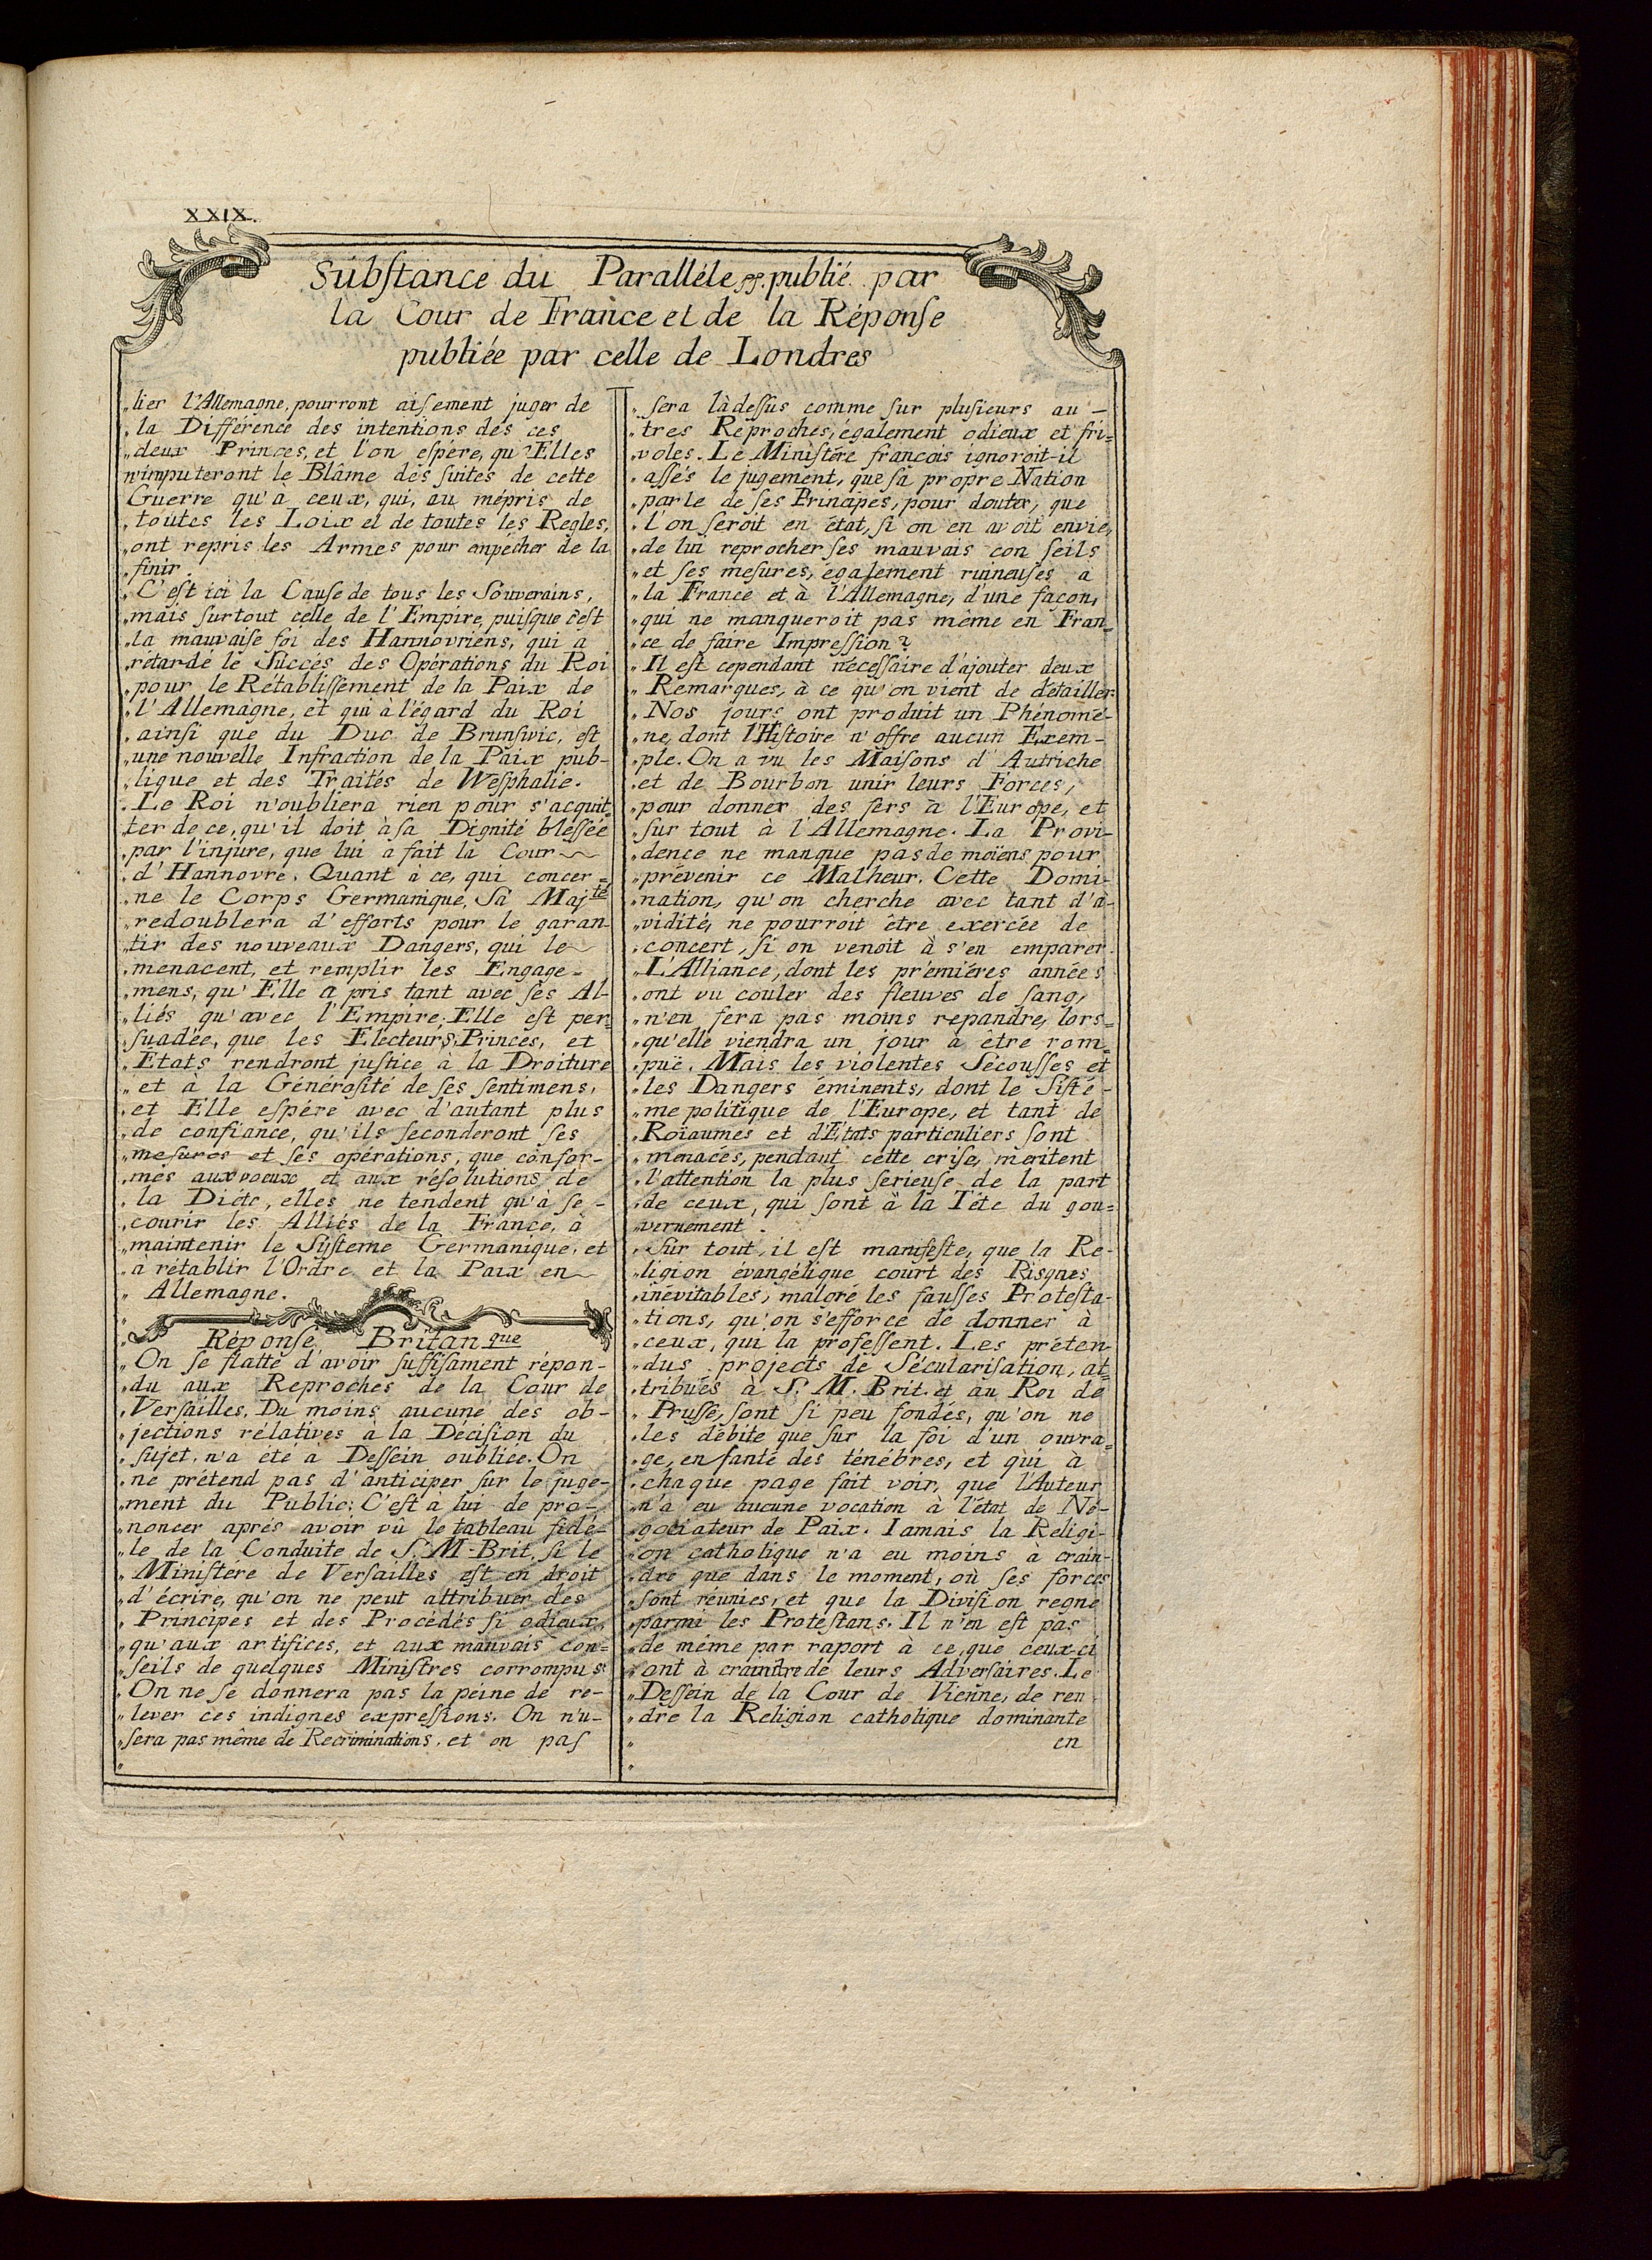 XXIX.
Substance du Paralléle pp. publié par
la Cour de France et de la Réponse
publiée par celle de Londres
„lier l'Allemagne, pourront aisement juger de
„la Différence des intentions des ces
„deux Princes, et l'on espére, qu'Elles
n'imputeront le Blâme des suites de cette
Guerre qu'à ceux, qui, au mépris de
„toutes les Loix et de toutes les Regles,
„ont repris les Armes pour anpécher de la
„finir.
„C'est ici la Cause de tous les Souverains,
„mais surtout celle de l'Empire, puisque c'est
„la mauvaise foi des Hannovriens, qui a
„rétardé le Succés des Opérations du Roi
„pour le Rétablissement de la Paix de
„l'Allemagne, et qui à l'égard du Roi
„ainsi que du Duc de Brunswic, est
„une nouvelle Infraction de la Paix pub-
„lique et des Traités de Wesphalie.
„Le Roi n'oubliera rien pour s'acquit
ter de ce, qu'il doit à sa Dignité blessée
„par l'injure, que lui a fait la Cour
„d'Hannovre. Quant à ce, qui concer=
„ne le Corps Germanique, Sa Maj.té
„redoublera d'efforts pour le garan-
„tir des nouveaux Dangers, qui le
„menacent, et remplir les Engage-
„mens, qu'Elle a pris tant avec ses Al-
„liés qu'avec l'Empire; Elle est per=
„suadée, que les Electeurs, Princes, et
„Etats rendront justice à la Droiture
„et à la Générosité de ses sentimens,
„et Elle espére avec d'autant plus
„de confiance, qu'ils seconderont ses
„mesures et ses opérations, que confor-
„més aux voeux et aux résolutions de
„la Diéte, elles ne tendent qu'à se-
„courir les Alliés de la France, à
„maintenir le Systeme Germanique, et
„a rétablir l'Ordre et la Paix en
„Allemagne.
„Réponse Britan que
„On se flatte d'avoir suffisament répon-
„du aux Reproches de la Cour de
„Versailles. Du moins aucune des ob-
„jections rélatives à la Décision du
„sujet, n'a été à Dessein oubliée. On
„ne prétend pas d'anticiper sur le juge-
„ment du Public: C'est à lui de pro-
„noncer aprés avoir vû le tableau fidé-
„le de la Conduite de S. M. Brit. si le
„Ministére de Versailles est en droit
„d'écrire, qu'on ne peut attribuer des
„Principes et des Procédés si odieux,
„qu'aux artifices, et aux mauvais con=
„seils de quelques Ministres corrompus.
„On ne se donnera pas la peine de re-
„lever ces indignes expressions. On n'u-
„sera pas même de Recriminations, et on pas
„sera là dessus comme sur plusieurs au-
„tres Reproches, également odieux et fri=
„voles. Le Ministére francois ignoroit-il
„assés le jugement, que sa propre Nation
„parle de ses Principes, pour douter, que
„l'on seroit en état, si on en avoit envie,
„de lui reprocher ses mauvais con seils
„et ses mesures, egalement ruineuses a
„la France et à l'Allemagne, d'une facon,
„qui ne manqueroit pas même en Fran=
„ce de faire Impression?
„Il est cependant nécessaire d'ajouter deux
„Remarques, à ce qu'on vient de détailler
„Nos jours ont produit un Phénomé-
„ne, dont l'Histoire n'offre aucun Exem-
„ple. On a vu les Maisons d'Autriche
„et de Bourbon unir leurs Forces,
„pour donner des fers à l'Europe, et
„sur tout à l'Allemagne. La Provi-
„dence ne manque pas de moiens pour
„prévenir ce Malheur. Cette Domi-
„nation, qu'on cherche avec tant d'a-
„vidité, ne pourroit être exercée de
„concert, si on venoit à s'en emparer.
„L'Alliance, dont les premiéres années
„ont vu couler des fleuves de sang,
„n'en fera pas moins repandre, lors=
„qu'elle viendra un jour à être rom=
„puë. Mais les violentes Sécousses et
„les Dangers éminents, dont le Sisté-
„me politique de l'Europe, et tant de
„Roiaumes et d'Etats particuliers sont
„menacés, pendant cette crise, meritent
„l'attention la plus serieuse de la part
„de ceux, qui sont à la Téte du gou=
„vernement.
„Sur tout, il est manifeste, que la Re-
„ligion évangélique court des Risques
„inévitables, malgré les fausses Protesta-
„tions, qu'on s'efforce de donner à
„ceux, qui la professent. Les préten
„dus projects de Sécularisation, at=
„tribués à S. M. Brit. et au Roi de
„Prusse, sont si peu fondés, qu'on ne
„les débite que sur la foi d'un ouvra=
„ge, enfanté des ténébres, et qui à
„chaque page fait voir, que l'Auteur
„n'a eu aucune vocation à l'état de Né-
„gociateur de Paix. Iamais la Religi-
„on catholique n'a eu moins à crain-
„dre que dans le moment, où ses forces
„sont réunies, et que la Division regne
„parmi les Protestans. Il n'en est pas
„de méme par raport à ce, que ceux-ci
„ont à craindre de leurs Adversaires. Le
„Dessein de la Cour de Vienne, de ren
„dre la Religion catholique dominante
en